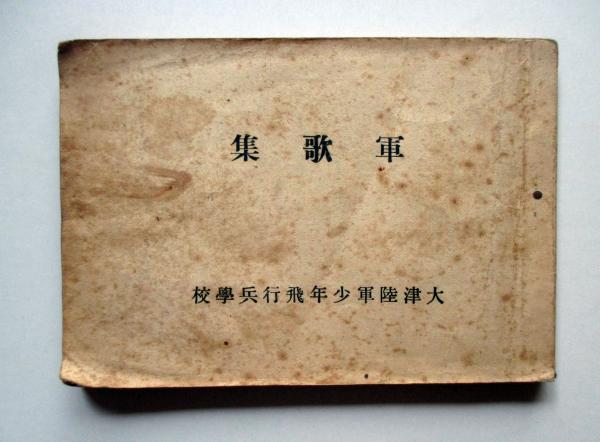 軍歌集
大津陸軍少年飛行兵學校